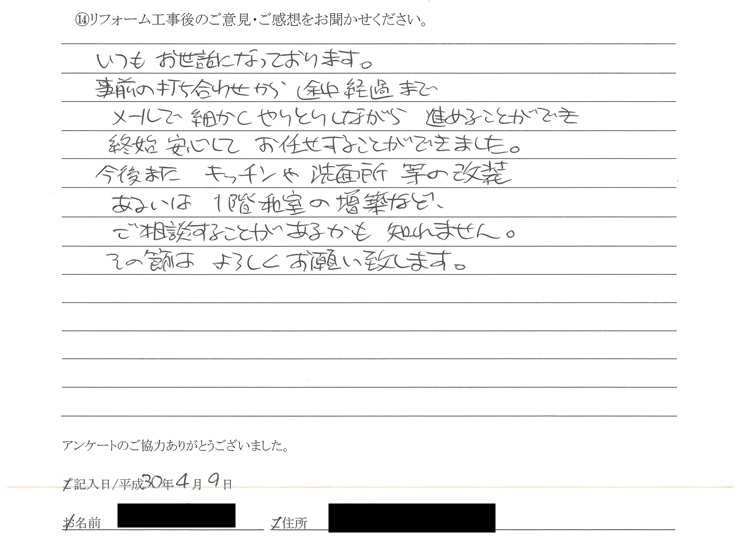 ⑭リフォーム工事後のご意見・ご感想をお聞かせください。
いつも お世話になっております。
事前の打ち合わせから 途中経過まで
メールで 細かく やりとりしながら 進めることができ
終始 安心して お任せすることができました。
今後また キッチンや 洗面所 等の改装
あるいは 1階和室の増築など、
ご相談することがあるかも 知れません。
その節は よろしく お願い致します。
アンケートのご協力ありがとうございました。
記入日/平成30年4月9日
お名前 住所